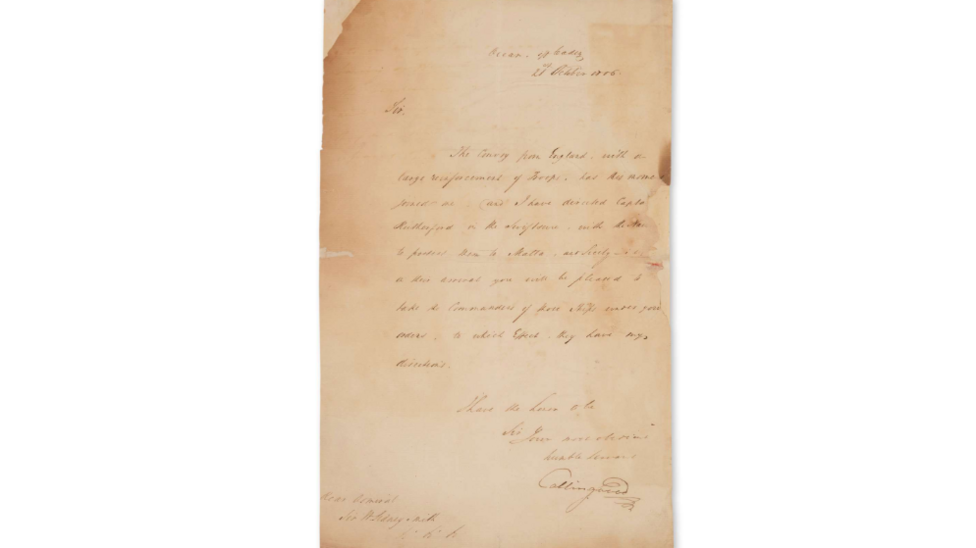 Ocean. off Cadiz
21st October 1806.
Sir,
The Convoy from England. with a
large reinforcement of Troops. has this
joined me. and I have directed Captn
Rutherford in the Swiftsure. with the
to proceed them to Malta. and Sicily
on their arrival you will be pleased to
take the Commanders of those Ships under your
orders, to which Effect. they have my
directions.
I have the honor to be
Sir Your most obedient
humble Servant
Collingwood
Rear Admiral
Sir W Sidney Smith